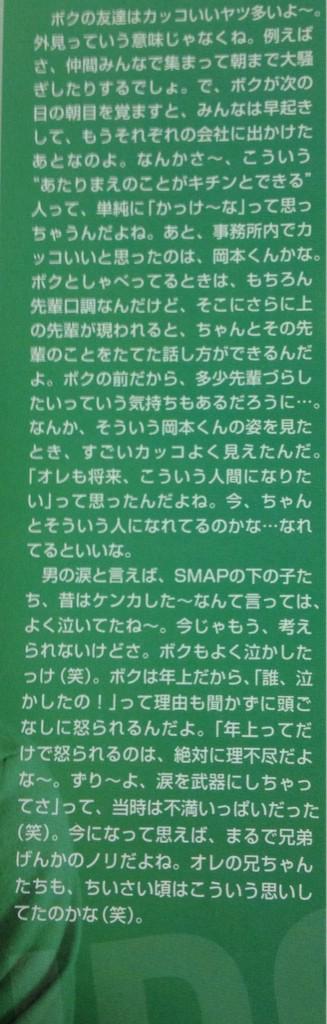 ボクの友達はカッコいいヤツ多いよ〜。
外見っていう意味じゃなくね。例えば
さ、仲間みんなで集まって朝まで大騒
ぎしたりするでしょ。で、ボクが次の
日の朝目を覚ますと、みんなは早起き
して、もうそれぞれの会社に出かけた
あとなのよ。なんかさ〜、こういう
“あたりまえのことがキチンとできる”
人って、単純に「かっけ〜な」って思っ
ちゃうんだよね。あと、事務所内でカ
ッコいいと思ったのは、岡本くんかな。
ボクとしゃべってるときは、もちろん
先輩口調なんだけど、そこにさらに上
の先輩が現われると、ちゃんとその先
輩のことをたてた話し方ができるんだ
よ。ボクの前だから、多少先輩づらし
たいっていう気持ちもあるだろうに…。
なんか、そういう岡本くんの姿を見た
とき、すごいカッコよく見えたんだ。
「オレも将来、こういう人間になりた
い」って思ったんだよね。今、ちゃん
とそういう人になれてるのかな…なれ
てるといいな。
　男の涙と言えば、SMAPの下の子た
ち、昔はケンカした〜なんて言っては、
よく泣いてたね〜。今じゃもう、考え
られないけどさ。ボクもよく泣かした
っけ（笑）。ボクは年上だから、「誰、泣
かしたの！」って理由も聞かずに頭ご
なしに怒られるんだよ。「年上ってだ
けで怒られるのは、絶対に理不尽だよ
な〜。ずり〜よ、涙を武器にしちゃっ
てさ」って、当時は不満いっぱいだった
（笑）。今になって思えば、まるで兄弟
げんかのノリだよね。オレの兄ちゃん
たちも、ちいさい頃はこういう思いし
てたのかな（笑）。